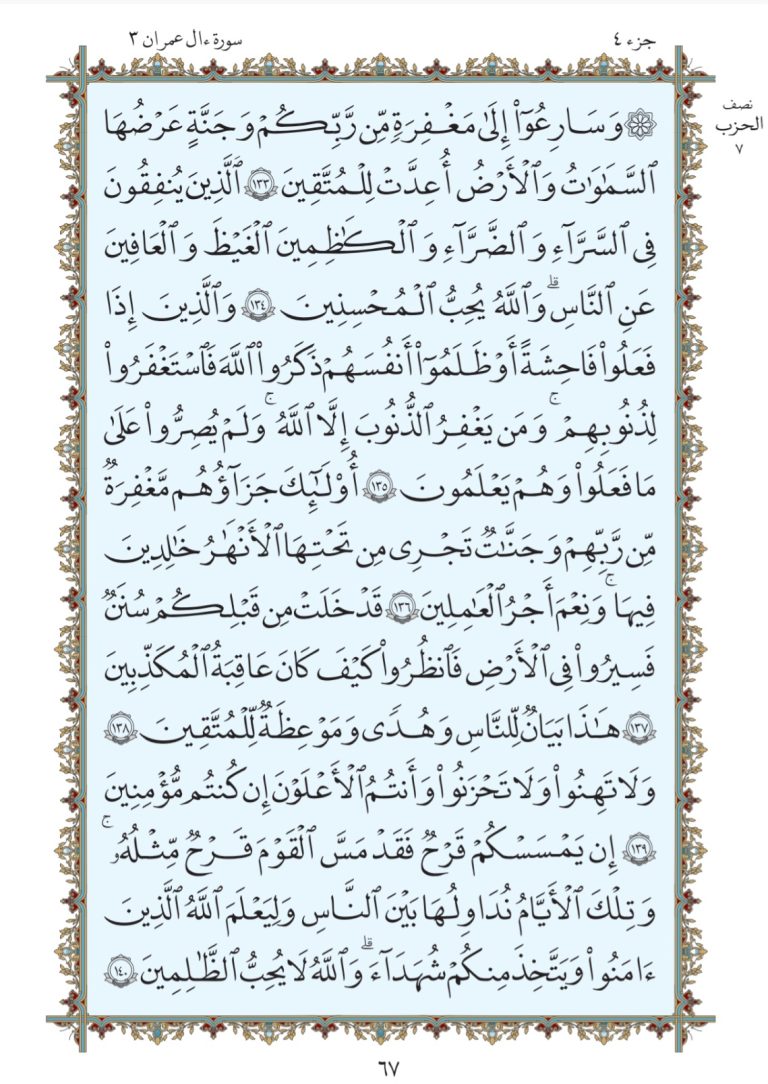 جزء ٤
سورة ءال عمران ٣
نصف
الحزب
٧
۞ وَسَارِعُوٓاْ إِلَىٰ مَغۡفِرَةٖ مِّن رَّبِّكُمۡ وَجَنَّةٍ عَرۡضُهَا
ٱلسَّمَٰوَٰتُ وَٱلۡأَرۡضُ أُعِدَّتۡ لِلۡمُتَّقِينَ ١٣٣ ٱلَّذِينَ يُنفِقُونَ
فِي ٱلسَّرَّآءِ وَٱلضَّرَّآءِ وَٱلۡكَٰظِمِينَ ٱلۡغَيۡظَ وَٱلۡعَافِينَ
عَنِ ٱلنَّاسِۗ وَٱللَّهُ يُحِبُّ ٱلۡمُحۡسِنِينَ ١٣٤ وَٱلَّذِينَ إِذَا
فَعَلُواْ فَٰحِشَةً أَوۡ ظَلَمُوٓاْ أَنفُسَهُمۡ ذَكَرُواْ ٱللَّهَ فَٱسۡتَغۡفَرُواْ
لِذُنُوبِهِمۡۚ وَمَن يَغۡفِرُ ٱلذُّنُوبَ إِلَّا ٱللَّهُۚ وَلَمۡ يُصِرُّواْ عَلَىٰ
مَا فَعَلُواْ وَهُمۡ يَعۡلَمُونَ ١٣٥ أُوْلَٰٓئِكَ جَزَآؤُهُم مَّغۡفِرَةٞ
مِّن رَّبِّهِمۡ وَجَنَّٰتٞ تَجۡرِي مِن تَحۡتِهَا ٱلۡأَنۡهَٰرُ خَٰلِدِينَ
فِيهَاۚ وَنِعۡمَ أَجۡرُ ٱلۡعَٰمِلِينَ ١٣٦ قَدۡ خَلَتۡ مِن قَبۡلِكُمۡ سُنَنٞ
فَسِيرُواْ فِي ٱلۡأَرۡضِ فَٱنظُرُواْ كَيۡفَ كَانَ عَٰقِبَةُ ٱلۡمُكَذِّبِينَ
١٣٧ هَٰذَا بَيَانٞ لِّلنَّاسِ وَهُدٗى وَمَوۡعِظَةٞ لِّلۡمُتَّقِينَ ١٣٨
وَلَا تَهِنُواْ وَلَا تَحۡزَنُواْ وَأَنتُمُ ٱلۡأَعۡلَوۡنَ إِن كُنتُم مُّؤۡمِنِينَ
١٣٩ إِن يَمۡسَسۡكُمۡ قَرۡحٞ فَقَدۡ مَسَّ ٱلۡقَوۡمَ قَرۡحٞ مِّثۡلُهُۥۚ
وَتِلۡكَ ٱلۡأَيَّامُ نُدَاوِلُهَا بَيۡنَ ٱلنَّاسِ وَلِيَعۡلَمَ ٱللَّهُ ٱلَّذِينَ
ءَامَنُواْ وَيَتَّخِذَ مِنكُمۡ شُهَدَآءَۗ وَٱللَّهُ لَا يُحِبُّ ٱلظَّٰلِمِينَ ١٤٠
٦٧